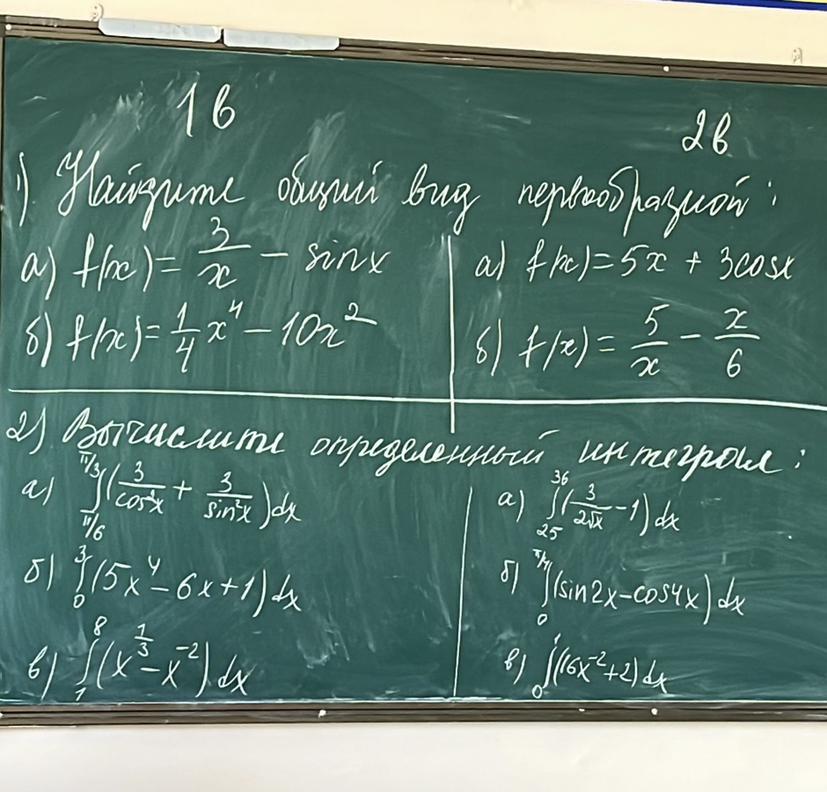 1в 2в
1) Найдите общий вид первообразной:
а) f(x) = 3/x − sinx
а) f(x) = 5x + 3cosx
б) f(x) = 1/4 x⁴ − 10x²
б) f(x) = 5/x − x/6
2) Вычислите определенный интеграл:
а) ∫_{π/6}^{π/3} (3/cos²x + 3/sin²x) dx
б) ∫_0^3 (5x⁴ − 6x + 1) dx
в) ∫_1^8 (x^{1/3} − x^{-2}) dx
а) ∫_{25}^{36} (3/(2√x) − 1) dx
б) ∫_0^{π/4} (sin2x − cos4x) dx
в) ∫_0^1 (16x^{-2} + 2) dx